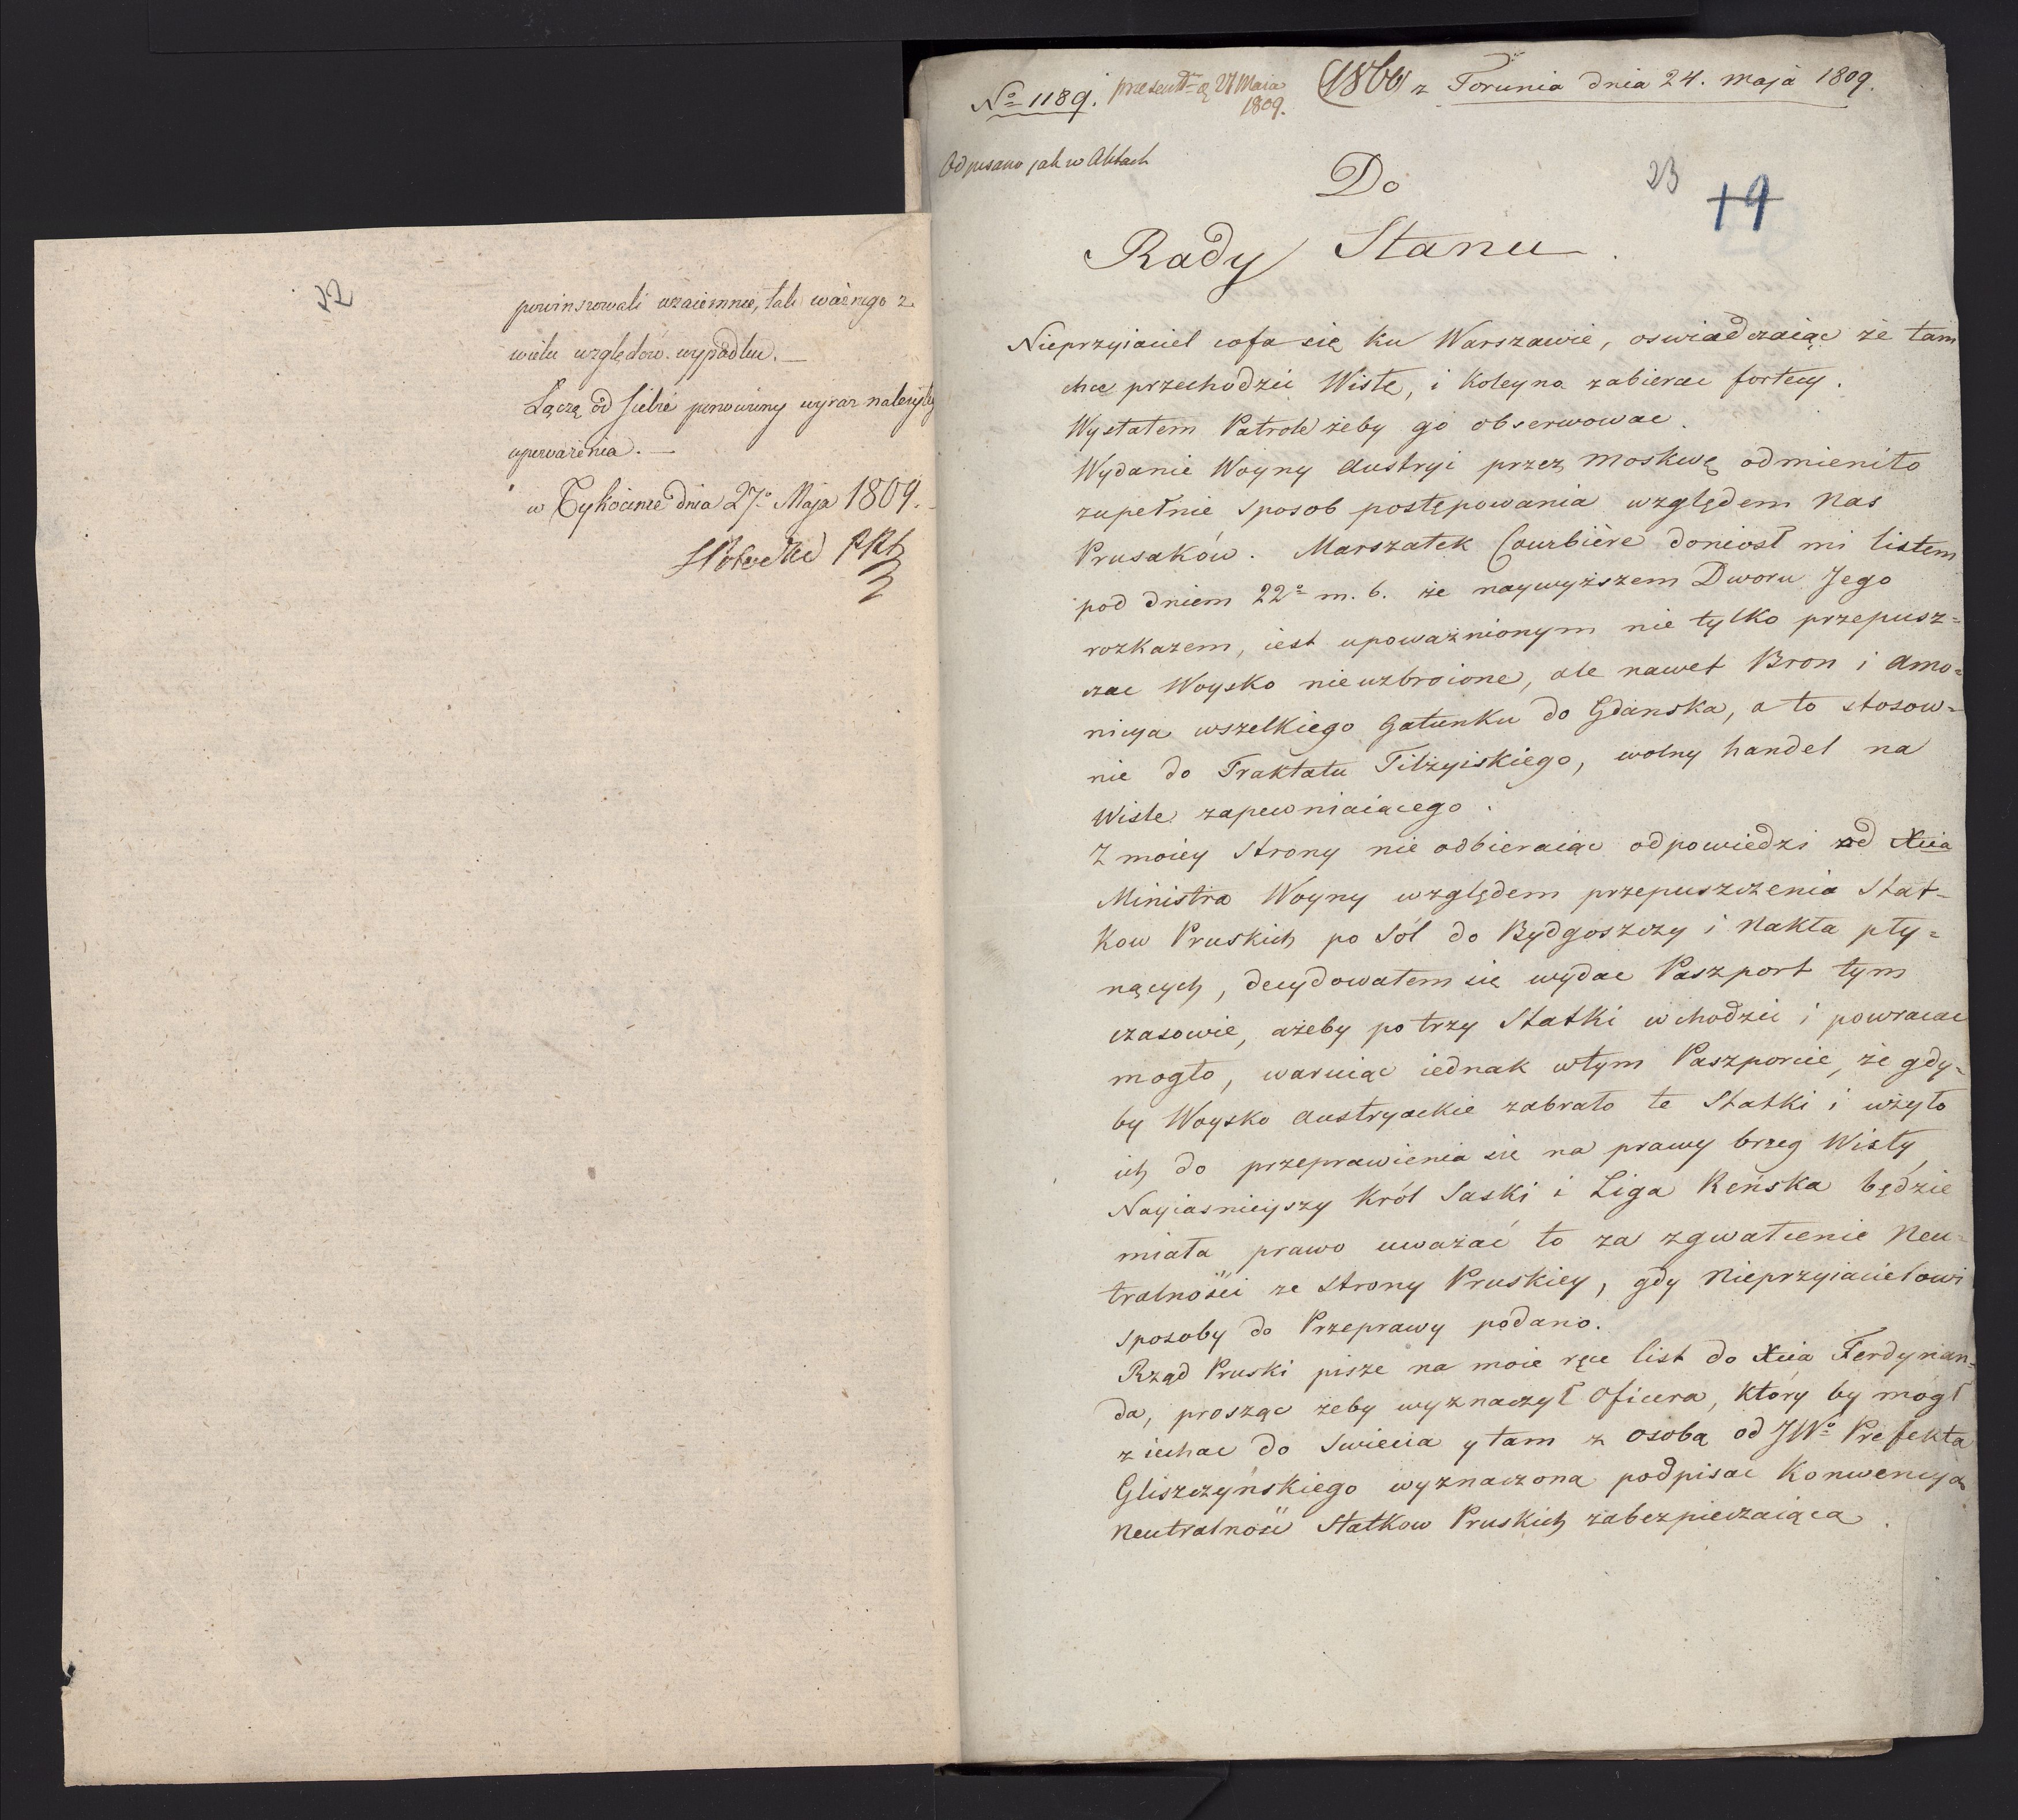 22
powinszowali wzaiemnie, tak ważnego z
wielu względów wypadku. —
Łączę od siebie ponowiony wyraz należytey
upoważenia. —
w Tykocinie dnia 27º Maja 1809. —
No 1189. present. d. 27 Maia
1809.
z Torunia dnia 24. maja 1809.
Odpisano jak w Aktach
23
19
Do
Rady Stanu.
Nieprzyiaciel cofa się ku Warszawie, oswiadczaiąc że tam
chce przechodzić Wisłę, i koleyno zabierac fortecy.
Wysłałem Patrole żeby go obserwowac.
Wydanie Woyny Austryi przez Moskwę odmieniło
zupełnie sposob postępowania względem nas
Prusaków. Marszałek Courbière doniosł mi listem
pod dniem 22º m. b. że naywyższem Dworu Jego
rozkazem, iest upoważnionym nie tylko przepusz=
czac Woysko nieuzbroione, ale nawet Bron i Amo=
nicya wszelkiego gatunku do Gdanska, a to stosow=
nie do Traktatu Tilżyiskiego, wolny handel na
Wisle zapewniaiącego.
Z moiey strony nie odbieraiąc odpowiedzi od Xcia
Ministra Woyny względem przepuszczenia Stat=
kow Pruskich po sól do Bydgoszczy i Nakła pły=
nących, decydowałem się wydac Paszport tym
czasowie, ażeby po trzy Statki wchodzić i powracac
mogło, waruiąc iednak w tym Paszporcie, że gdy=
by Woysko Austryackie zabrało te Statki i użyło
ich do przeprawienia się na prawy brzeg Wisły
Nayiasnieyszy Król Saski i Liga Reńska będzie
miała prawo uważać to za zgwałcenie Neu=
tralności ze strony Pruskiey, gdy Nieprzyiacielowi
sposoby do Przeprawy podano.
Rząd Pruski pisze na moie ręce list do Xcia Ferdynan=
da, prosząc żeby wyznaczył Oficera, który by mogł
ziechac do Swiecia y tam z osobą od JWº Prefekta
Gliszczyńskiego wyznaczoną podpisac Konwencyą
Neutralność Statkow Pruskich zabezpieczaiącą.